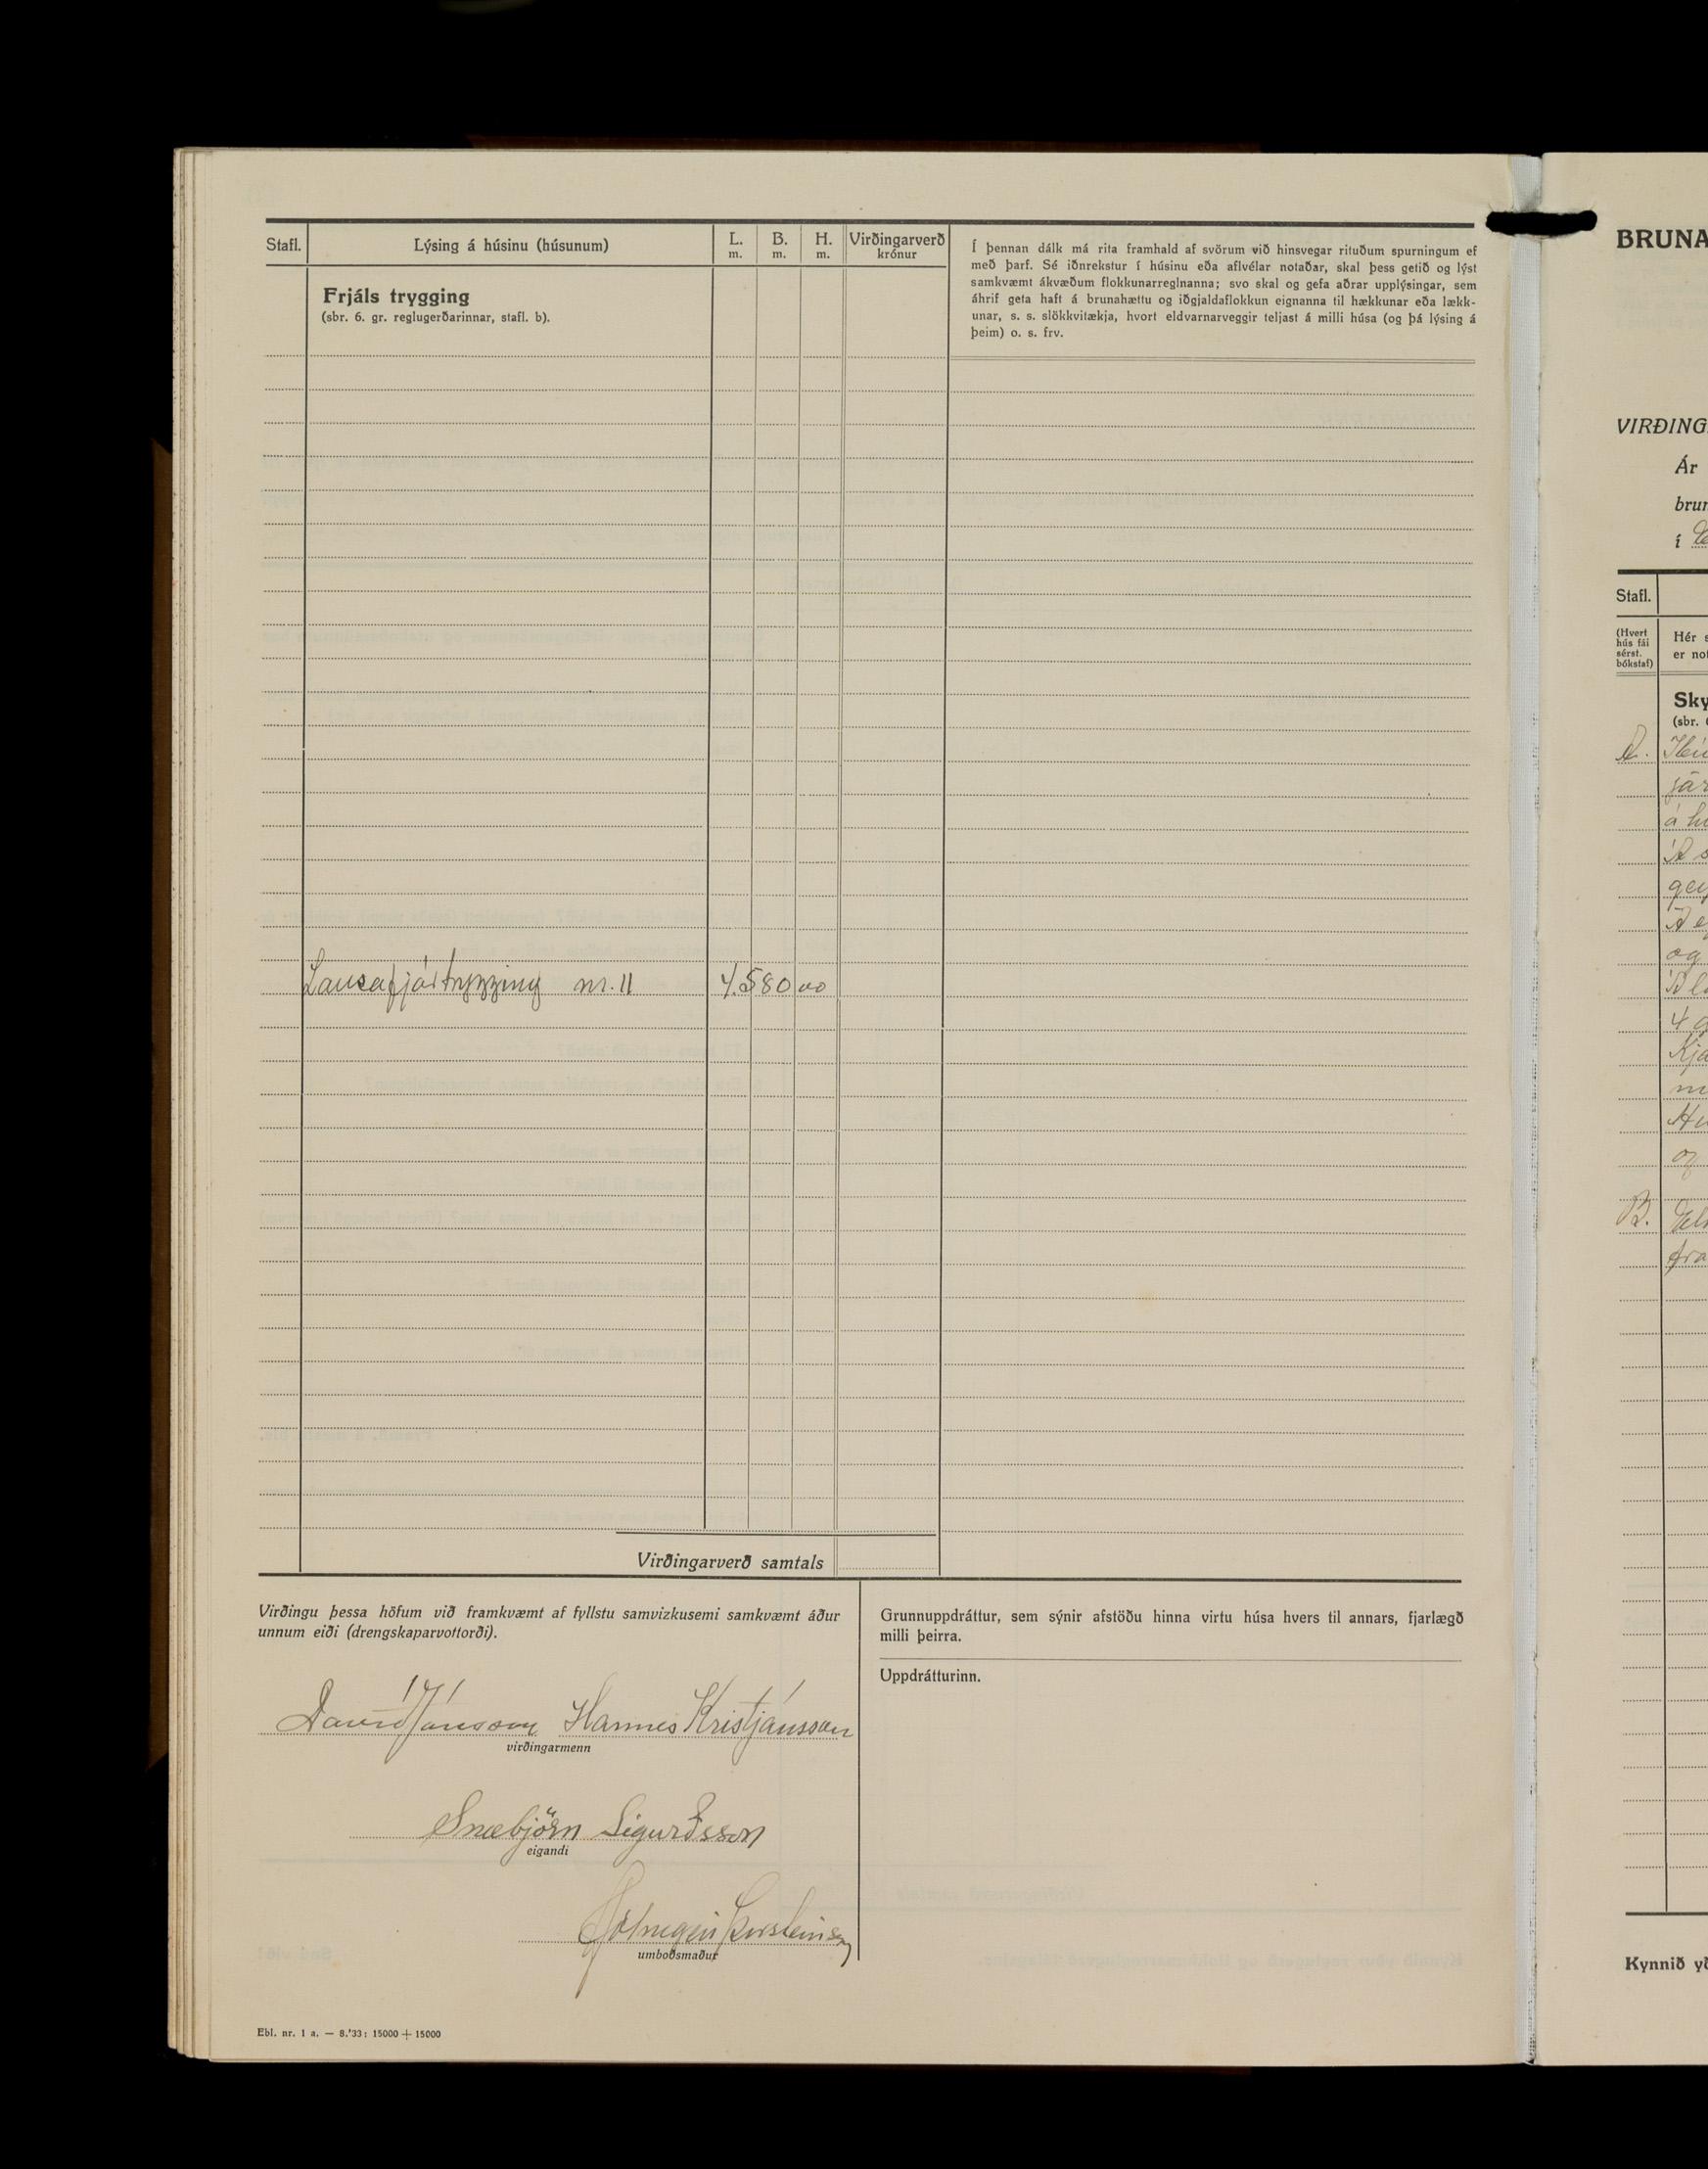 Stafl.
Lýsing á húsinu (húsunum)
L.
m.
B.
m.
H.
m.
Virðingarverð
krónur
Frjáls trygging
(sbr. 6. gr. reglugerðarinnar, stafl. b).
Í þennan dálk má rita framhald af svörum við hinsvegar rituðum spurningum ef
með þarf. Sé iðnrekstur í húsinu eða aflvélar notaðar, skal þess getið og lýst
samkvæmt ákvæðum flokkunarreglnanna; svo skal og gefa aðrar upplýsingar, sem
áhrif geta haft á brunahættu og iðgjaldaflokkun eignanna til hækkunar eða lækk-
unar, s. s. slökkvitækja, hvort eldvarnarveggir teljast á milli húsa (og þá lýsing á
þeim) o. s. frv.
Lausafjártrygging nr. 11 4.580 00
Virðingarverð samtals
Virðingu þessa höfum við framkvæmt af fyllstu samvizkusemi samkvæmt áður
unnum eiði (drengskaparvottorði).
Davíð Jónsson Hannes Kristjánsson
virðingarmenn
Snæbjörn Sigurðsson
eigandi
Hólmgeir Þorsteinsson
umboðsmaður
Grunnuppdráttur, sem sýnir afstöðu hinna virtu húsa hvers til annars, fjarlægð
milli þeirra.
Uppdrátturinn.
Ebl. nr. 1 a. — 8.'33: 15000 + 15000
BRUNA
VIRÐING
Ár
brun
í
Stafl.
(Hvert
hús fái
sérst.
bókstaf)
Hér s
er not
Sky
(sbr. 6
A.
á hú
og
og
B.
fra
Kynnið yð